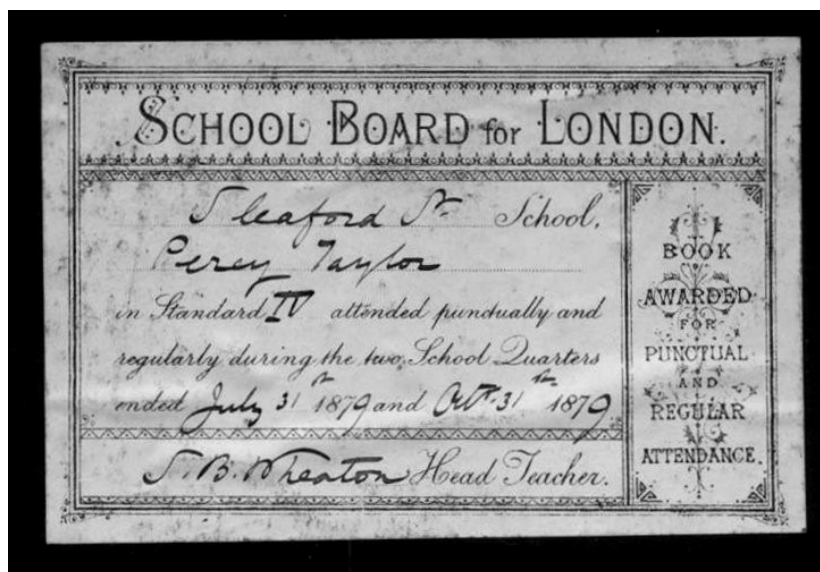 SCHOOL BOARD for LONDON.
Sleaford St School,
Percy Taylor
in Standard IV attended punctually and
regularly during the two School Quarters
ended July 31st 1879 and Octr 31st 1879
S. B. Wheaton Head Teacher.
BOOK
AWARDED
FOR
PUNCTUAL
AND
REGULAR
ATTENDANCE.